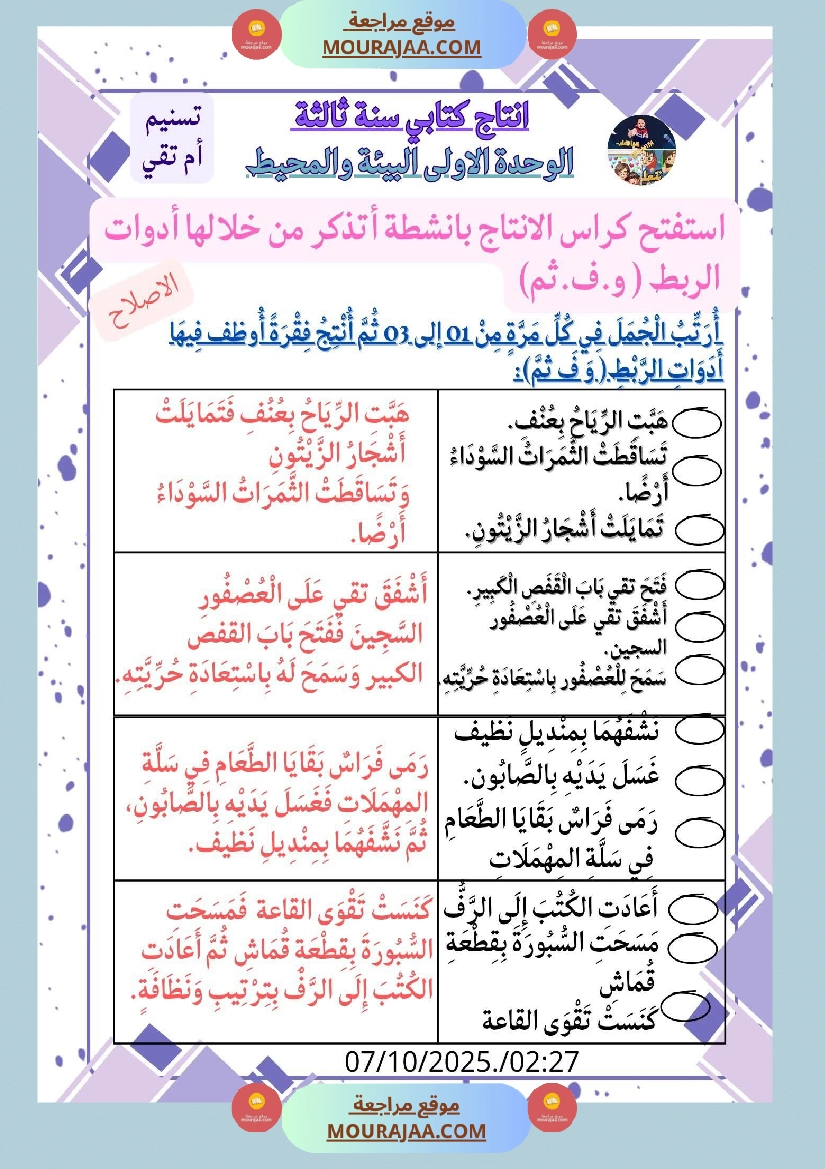 موقع مراجعة
MOURAJAA.COM
انتاج كتابي سنة ثالثة
الوحدة الاولى البيئة والمحيط
تسنيم
أم تقي
استفتح كراس الانتاج بانشطة أتذكر من خلالها أدوات
الربط ( و.ف.ثم)
الاصلاح
أُرَتِّبُ الْجُمَلَ فِي كُلِّ مَرَّةٍ مِنْ 01 إلى 03 ثُمَّ أُنْتِجُ فِقْرَةً أُوظف فِيهَا
أَدَوَاتِ الرَّبْطِ(وَ فَ ثمَّ):
هَبَّتِ الرِّيَاحُ بِعُنْفٍ.
تَسَاقَطَتْ الثَّمَرَاتُ السَّوْدَاءُ
أَرْضًا.
تَمَايَلَتْ أَشْجَارُ الزَّيْتُونِ.
هَبَّتِ الرِّيَاحُ بِعُنُفِ فَتَمَايَلَتْ
أَشْجَارُ الزَّيْتُونِ
وَتَسَاقَطَتْ الثَّمَرَاتُ السَّوْدَاءُ
أَرْضًا.
فَتَحَ تقي بَابَ الْقَفَصِ الْكَبِيرِ.
أَشْفَقَ تقي عَلَى الْعُصْفُور
السجين.
سَمَحَ لِلْعُصْفُورِ بِاسْتِعَادَةِ حُرِّيَّتِهِ.
أَشْفَقَ تقي عَلَى الْعُصْفُورِ
السَّجِينَ فَفَتَحَ بَابَ القفص
الكبير وَسَمَحَ لَهُ بِاسْتِعَادَةِ حُرِّيَّتِهِ.
نَشَّفَهُمَا بِمِنْدِيلٍ نَظيف
غَسَلَ يَدَيْهِ بِالصَّابُون.
رَمَى فَرَاسٌ بَقَايَا الطَّعَامِ
فِي سَلَّةِ المِهْمَلَاتِ
رَمَى فَرَاسٌ بَقَايَا الطَّعَامِ فِي سَلَّةِ
المِهْمَلَاتِ فَغَسَلَ يَدَيْهِ بِالصَّابُونِ،
ثُمَّ نَشَّفَهُمَا بِمِنْدِيلِ نَظيف.
أَعَادَتِ الكُتُبَ إِلَى الرَّفِّ
مَسَحَتِ السُّبُورَةَ بِقِطْعَةِ
قُمَاشِ
كَنَسَتْ تَقْوَى القاعة
كَنَسَتْ تَقْوَى القاعة فَمَسَحَتِ
السُّبُورَةَ بِقِطْعَة قُمَاشِ ثُمَّ أَعَادَتِ
الكُتُبَ إِلَى الرَّفِّ بِتِرْتِيبٍ وَنَظَافَةٍ.
07/10/2025./02:27
موقع مراجعة
MOURAJAA.COM